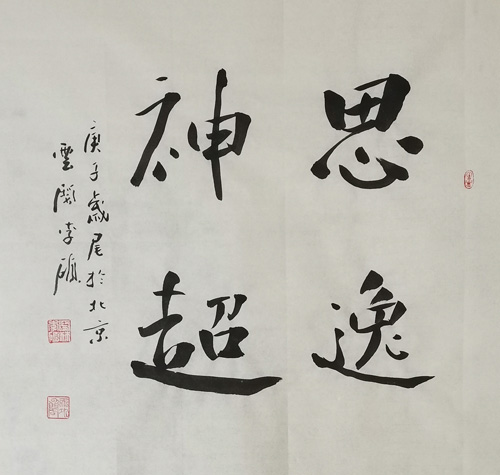 思逸
神超
庚子歲尾於北京
雲閣李碩